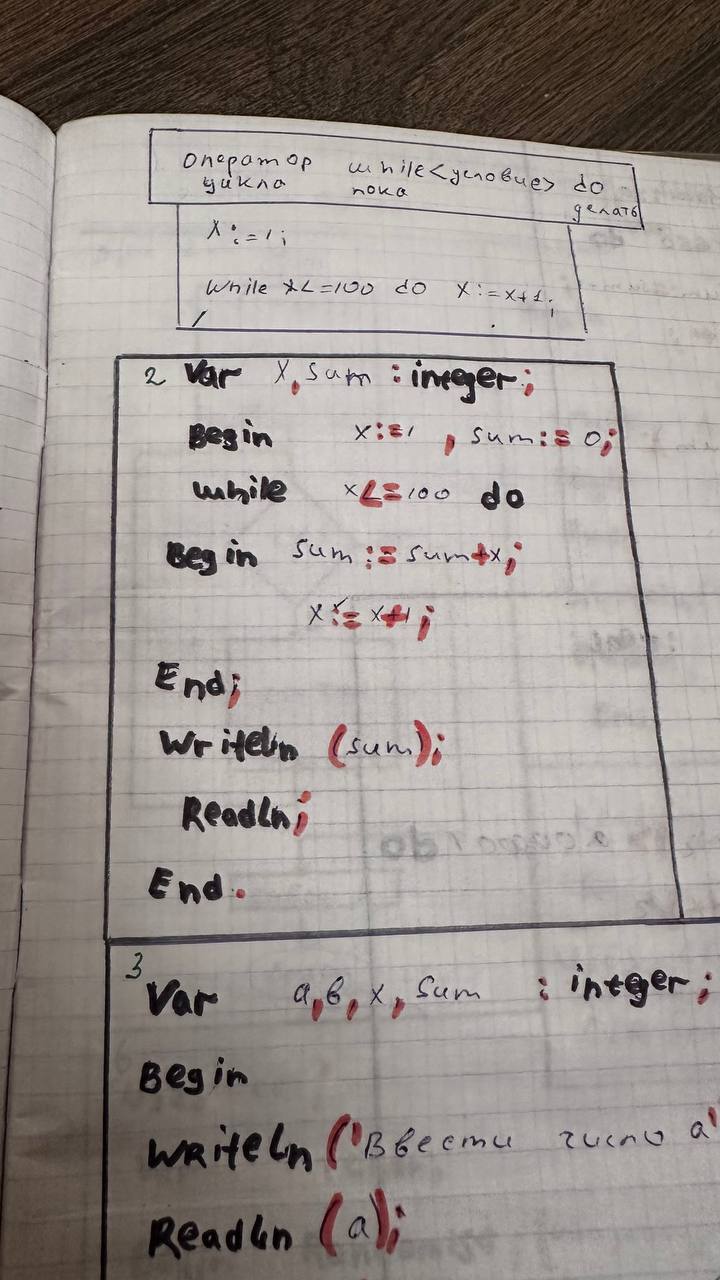 Оператор while <условие> do
цикла пока делать
x:=1;
While x<=100 do x:=x+1;
2 Var x, sum : integer;
Begin x:=1 , sum:= 0;
while x<=100 do
Begin sum := sum+x;
x:= x+1;
End;
WriteLn (sum);
ReadLn;
End.
3
Var a, b, x, sum : integer;
Begin
WriteLn ('Ввести число a'
ReadLn (a);